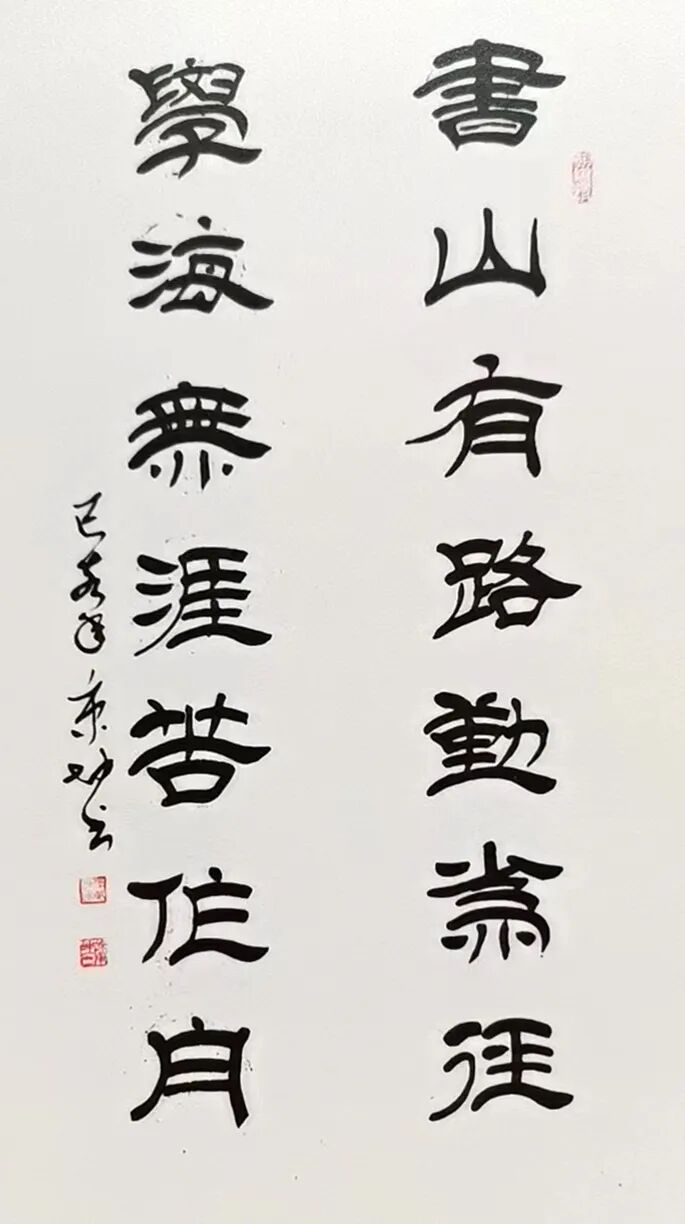 書山有路勤為徑
學海無涯苦作舟
己亥年 书